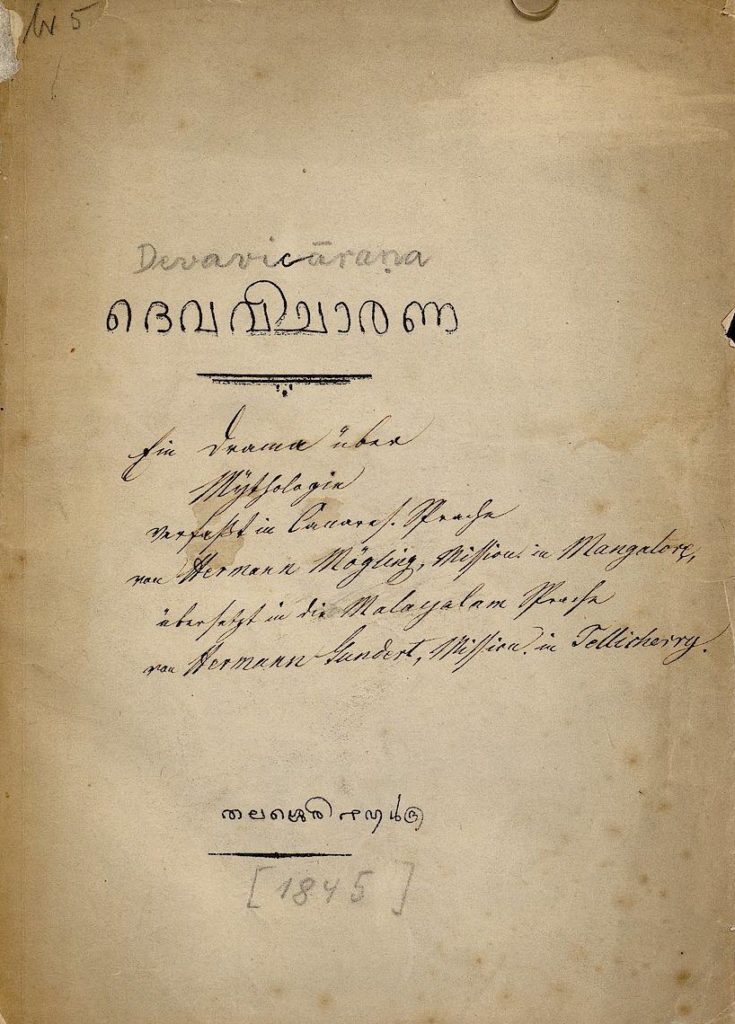 Nr 5
Devavicāraṇa
ദെവവിചാരണ
Ein Drama über
Mÿthologie
verfaßt in Canares. Sprache
von Hermann Mögling, Mission. in Mangalore,
übersetzt in die Malayalam Sprache
von Hermann Gundert, Mission. in Tellicherry.
തലശ്ശെരി
[1845]